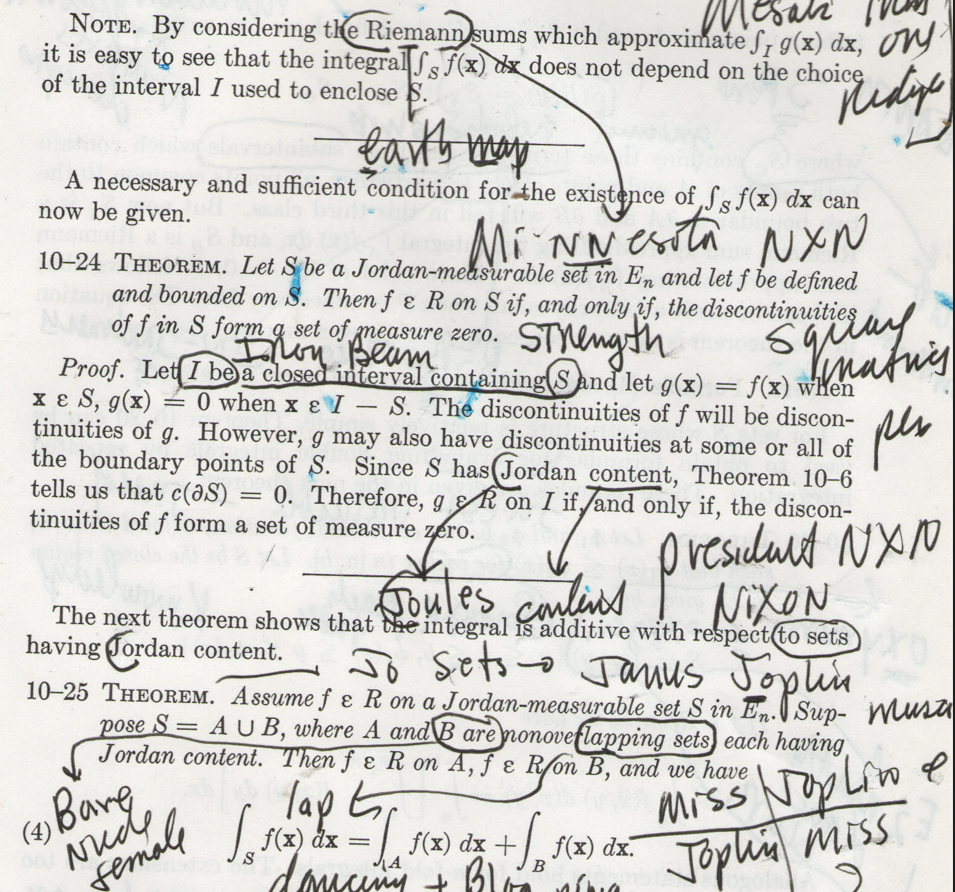 Mesabi
NOTE. By considering the Riemann sums which approximate ∫_I g(x) dx,
ons
it is easy to see that the integral ∫_S f(x) dx does not depend on the choice
of the interval I used to enclose S.
earth map
A necessary and sufficient condition for the existence of ∫_S f(x) dx can
now be given.
Minnesota NXN
10–24 THEOREM. Let S be a Jordan-measurable set in E_n and let f be defined
and bounded on S. Then f ε R on S if, and only if, the discontinuities
of f in S form a set of measure zero.
STRENgth Square
Iron Beam matrix
Proof. Let I be a closed interval containing S and let g(x) = f(x) when
x ε S, g(x) = 0 when x ε I − S. The discontinuities of f will be discon-
per
tinuities of g. However, g may also have discontinuities at some or all of
the boundary points of S. Since S has Jordan content, Theorem 10–6
tells us that c(∂S) = 0. Therefore, g ε R on I if, and only if, the discon-
tinuities of f form a set of measure zero.
president NXN
Joules content NiXON
The next theorem shows that the integral is additive with respect to sets
having Jordan content.
Jo sets → Janus Joplin
10–25 THEOREM. Assume f ε R on a Jordan-measurable set S in E_n. Sup-
pose S = A ∪ B, where A and B are nonoverlapping sets each having
Jordan content. Then f ε R on A, f ε R on B, and we have
Bare
nude
female
Lap
Miss Joplin to
Joplin Miss
(4) ∫_S f(x) dx = ∫_A f(x) dx + ∫_B f(x) dx.
dancing +